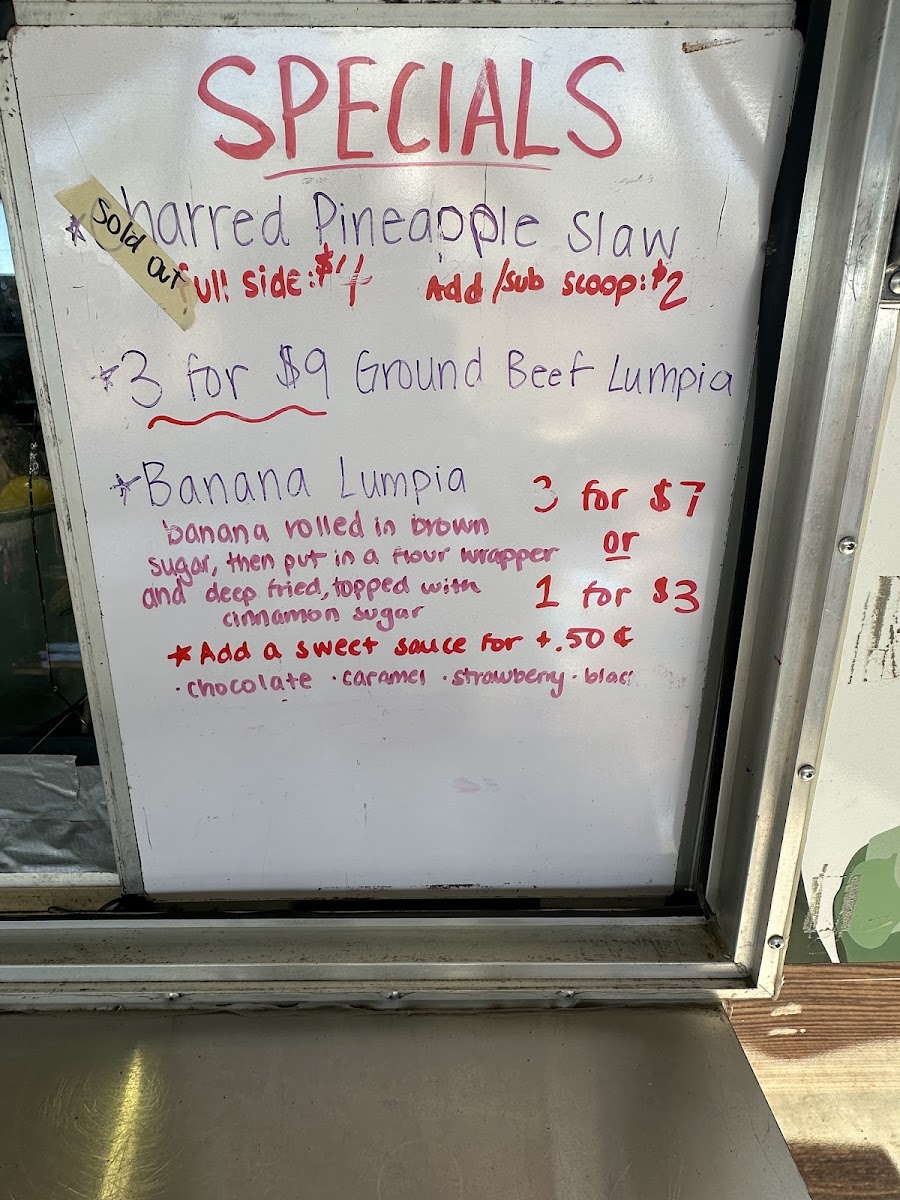 SPECIALS
Sold Out
* Charred Pineapple Slaw
full side: $4 Add/sub scoop: $2
* 3 for $9 Ground Beef Lumpia
* Banana Lumpia
3 for $7
or
1 for $3
banana rolled in brown
sugar, then put in a flour wrapper
and deep fried, topped with
cinnamon sugar
* Add a sweet sauce for +.50¢
· chocolate · caramel · strawberry ·